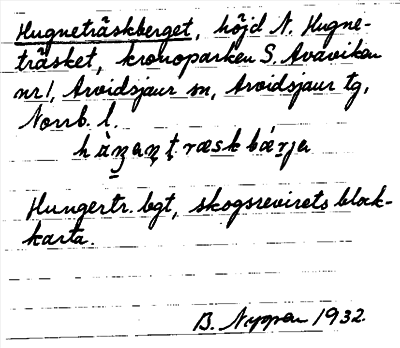 Hugneträskberget, höjd N. Hugne-
träsket, kronoparken S. Avavikan
nr 1, Arvidsjaur sn, Arvidsjaur tg,
Norrb. l.
Hungertr. bgt, skogsrevirets blad-
karta.
B. Nyman 1932.